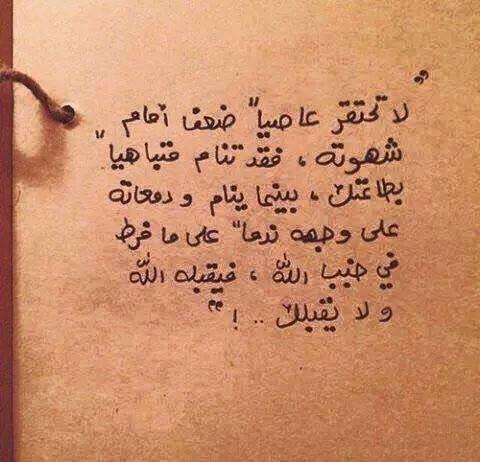 ”لا تحتقر عاصياً ضعف أمام
شهوته ، فقد تنام متباهياً
بطاعتك ، بينما ينام و دمعاته
على وجهه ندماً على ما فرط
في جنب الله ، فيقبله الله
و لا يقبلك .. ! “